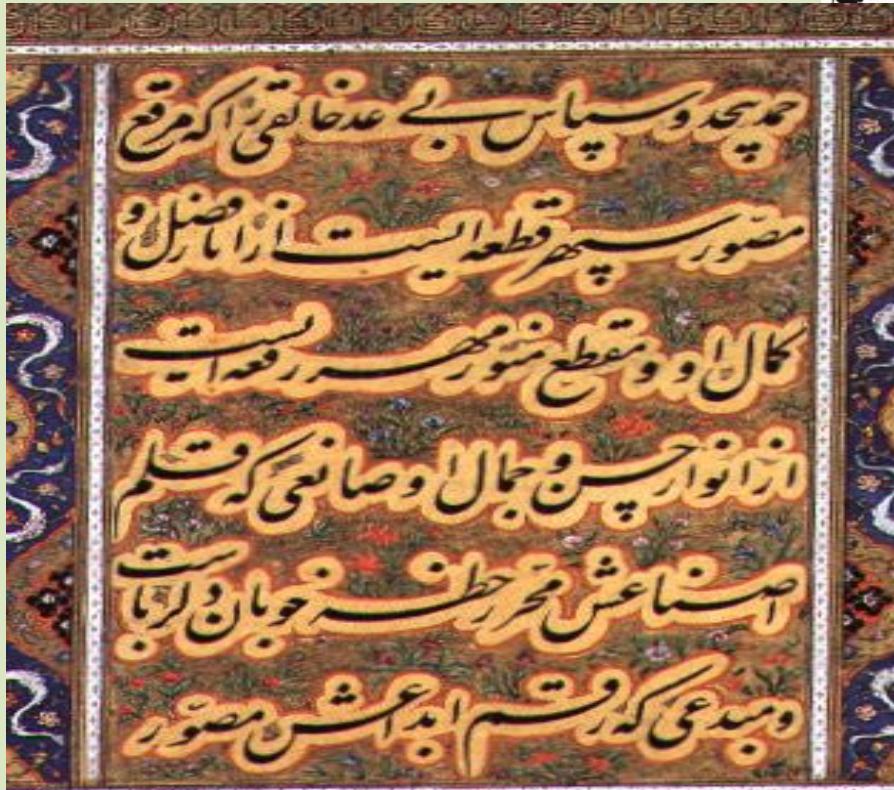 حمد بیحد و سپاس بی عد خالقی را که مرقع
مصوّر سپهر قطعه ایست از آثار فضل و
کمال او و مقطع منوّر مهر رقعه ایست
از انوار حسن و جمال او صانعی که قلم
اصناعش محرّر خط خوبان دلرباست
و مبدعی که رقم ابداعش مصوّر